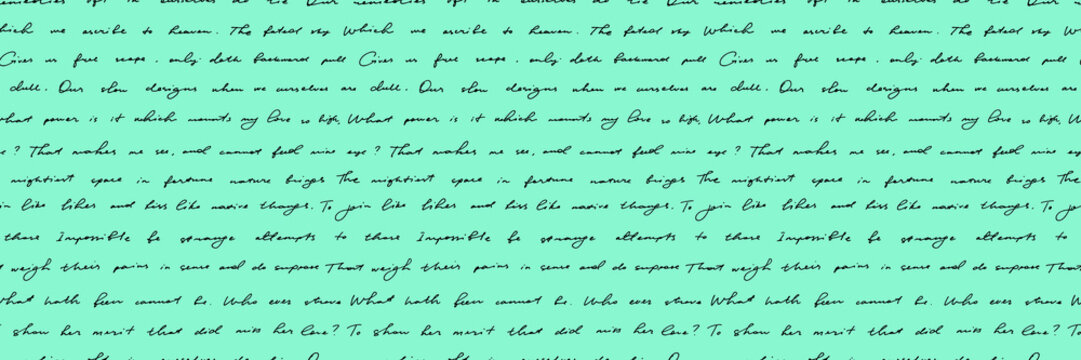 remedies oft in ourselves do lie Our remedies oft in ourselves do lie Our remedies oft in ourselves do lie Our
which we ascribe to heaven. The fated sky Which we ascribe to heaven. The fated sky Which we ascribe to heaven. The fated sky W
Gives us free scope, only doth backward pull Gives us free scope, only doth backward pull Gives us free scope, only doth backward pull
dull. Our slow designs when we ourselves are dull. Our slow designs when we ourselves are dull. Our slow designs when we ourselves are
what power is it which mounts my love so high, What power is it which mounts my love so high, What power is it which mounts my love so high, W
e? That makes me see, and cannot feed mine eye? That makes me see, and cannot feed mine eye? That makes me see, and cannot feed mine
mightiest space in fortune nature brings The mightiest space in fortune nature brings The mightiest space in fortune nature brings The
in like likes and kiss like native things. To join like likes and kiss like native things. To join like likes and kiss like native things. To join
those Impossible be strange attempts to those Impossible be strange attempts to those Impossible be strange attempts to
t weigh their pains in sense and do suppose That weigh their pains in sense and do suppose That weigh their pains in sense and do suppose That
what hath been cannot be. Who ever strove What hath been cannot be. Who ever strove What hath been cannot be. Who ever strove W
To show her merit that did miss her love? To show her merit that did miss her love? To show her merit that did miss her love? To